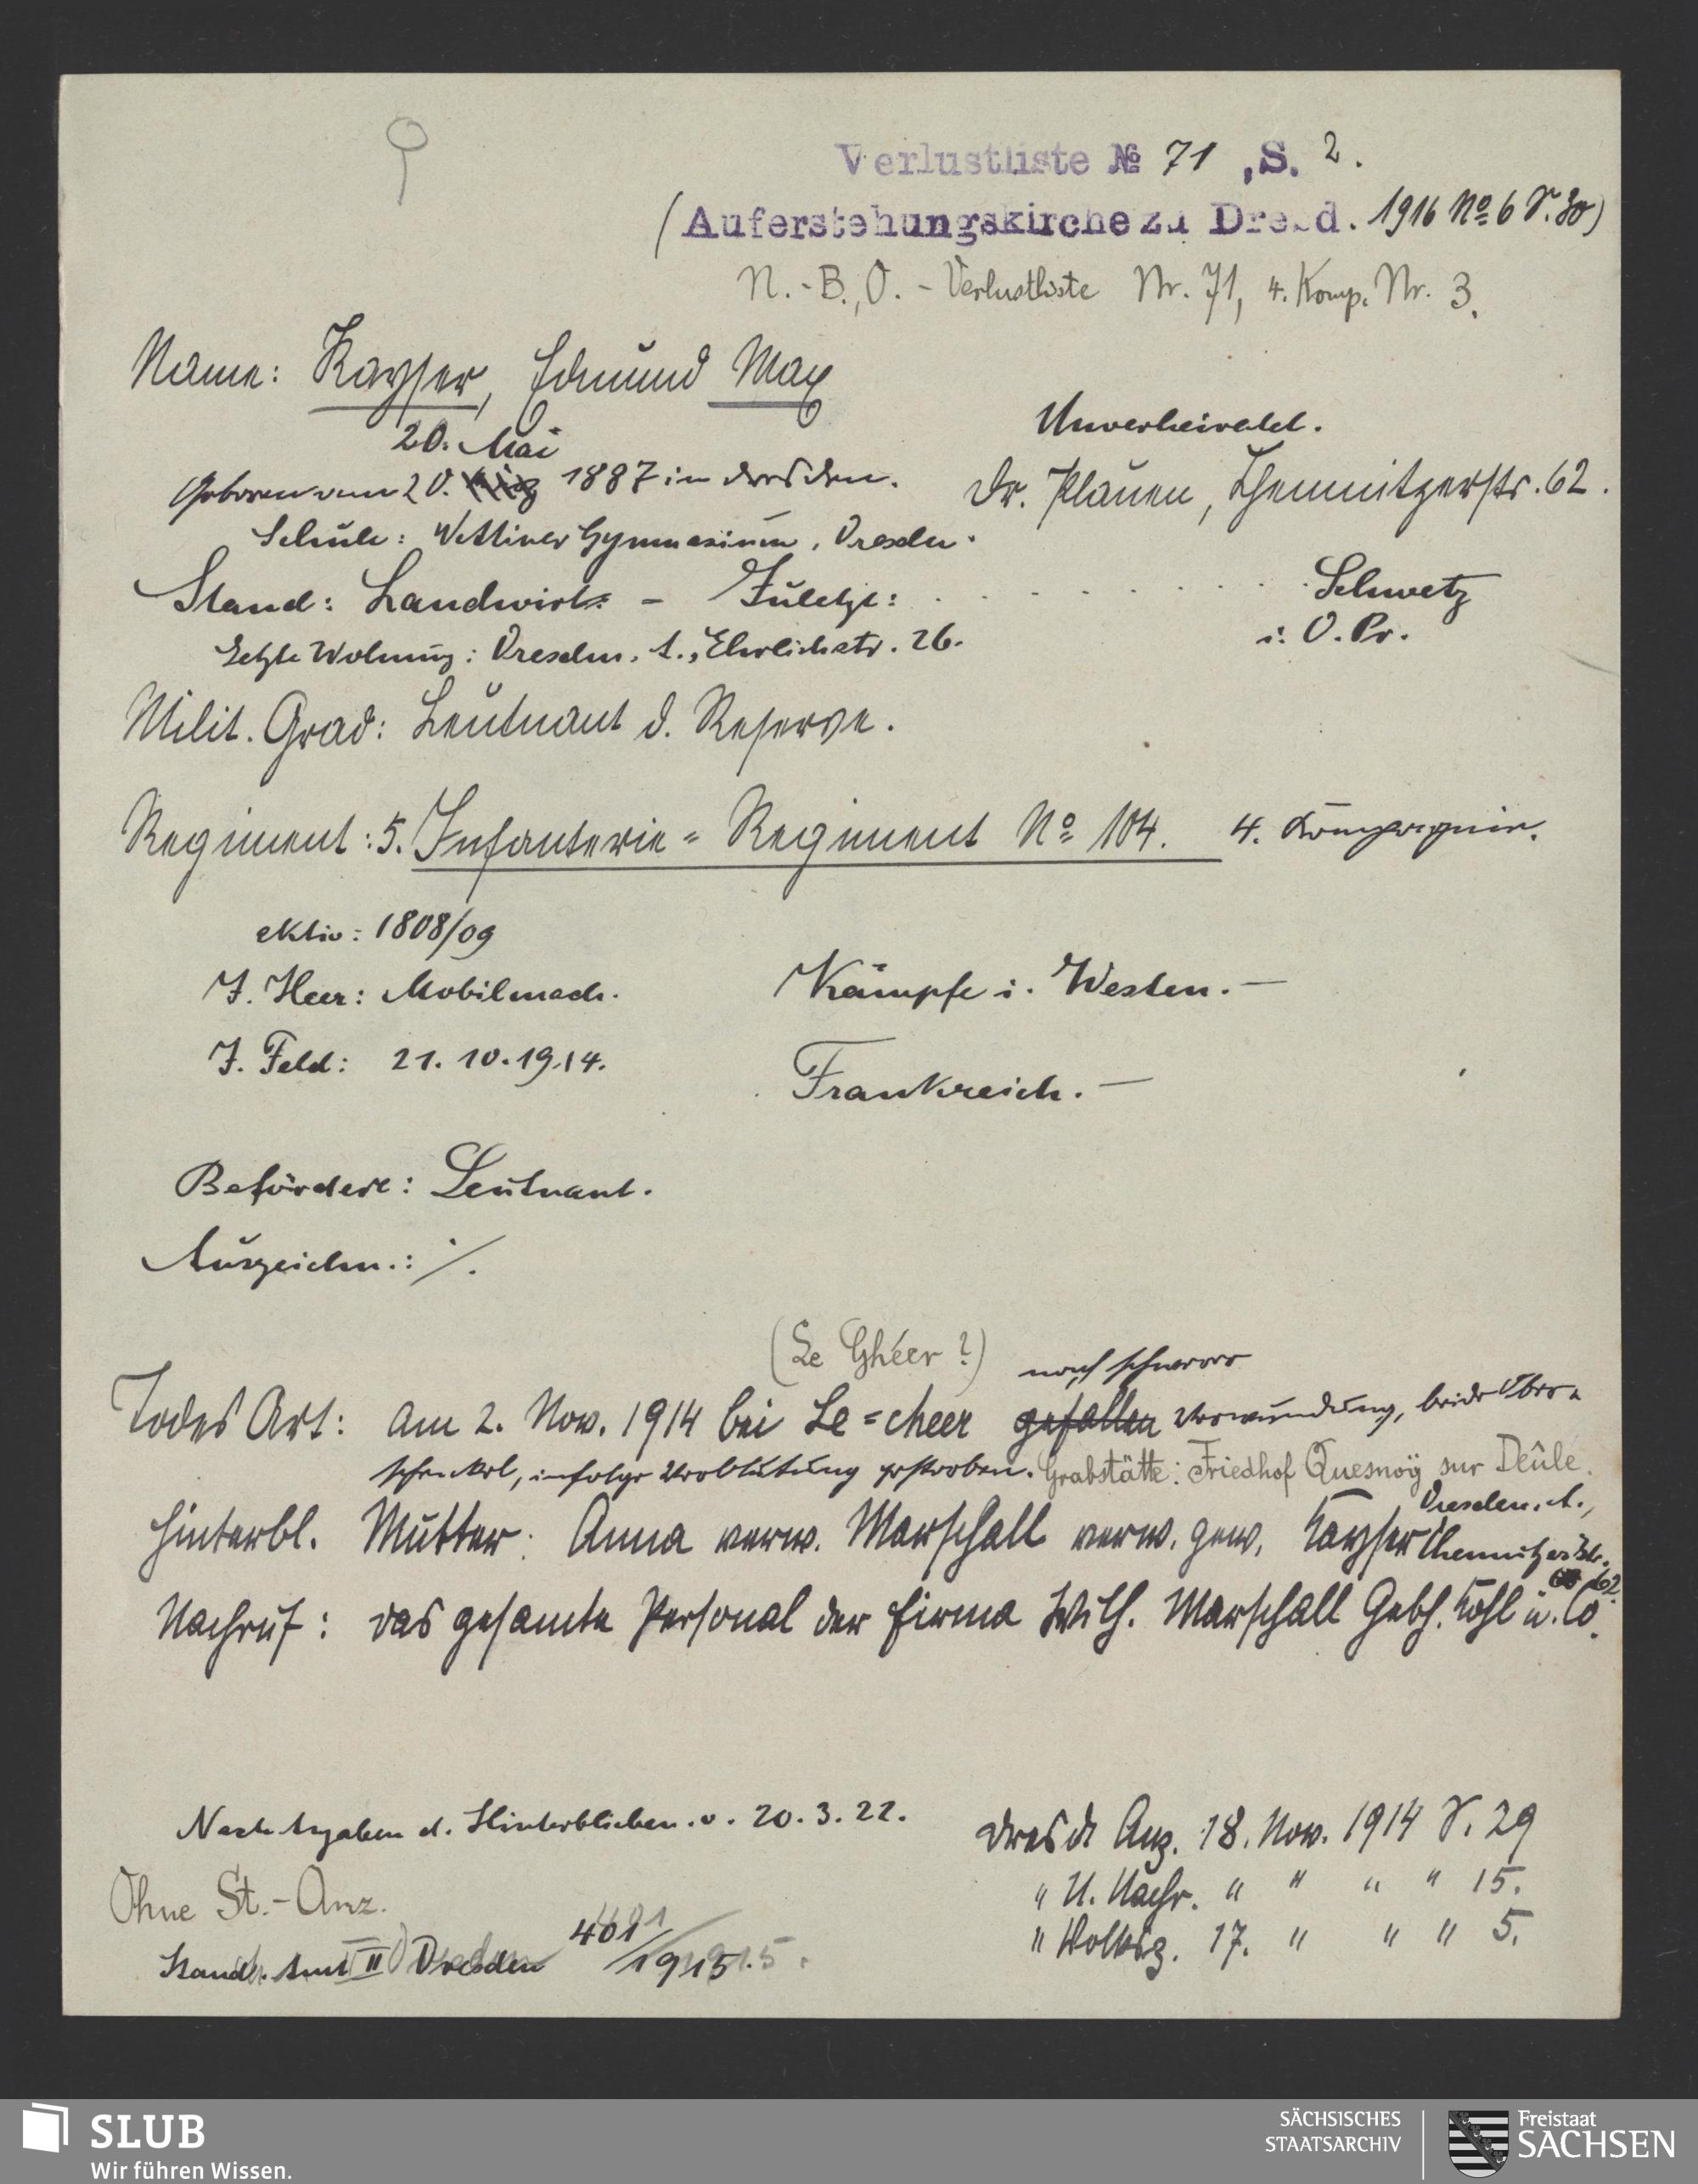 Verlustliste № 71, S. 2.
(Auferstehungskirche zu Dresd. 1916 No 6 S. 30)
N.-B., O.-Verlustliste Nr. 71, 4. Komp. Nr. 3.
Name: Kayser, Edmund Max
20. Mai
Unverheiratet.
Geboren am 20. 1887 in Dresden.
Dr. Plauen, Chemnitzerstr. 62.
Schule: Wettiner Gymnasium, Dresden.
Stand: Landwirt - Zuletzt: . . . . . . . . Schwetz
i. O. Pr.
Letzte Wohnung: Dresden, A., Ehrlichstr. 26.
Milit. Grad: Leutnant d. Reserve.
Regiment: 5. Infanterie = Regiment No 104. 4. Kompagnie.
aktiv: 1808/09
Z. Heer: Mobilmach. Kämpfe i. Westen. —
Z. Feld: 21. 10. 1914. Frankreich. —
Befördert: Leutnant.
Auszeichn.: ·/.
(Le Ghéer?) nach schwerer
Todes Art: Am 2. Nov. 1914 bei Le=cheer gefallen Verwundung, beide Ober-
schenkel, infolge Verblutung gestorben. Grabstätte: Friedhof Quesnoÿ sur Deûle.
Dresden. A.,
Hinterbl. Mutter: Anna verw. Marschall verw. gew. Kayser Chemnitzerstr.
62
Nachruf: das gesamte Personal der Firma Wilh. Marschall Gebh. Kohl u. Co.
Nach Angaben d. Hinterblieben. v. 20. 3. 22.
Dresd. Anz. 18. Nov. 1914 S. 29
" N. Nachr. " " " " 15.
" Volksz. 17. " " " 5.
Ohne St.-Anz.
Stand. Amt II Dresden 4681/1915.
SLUB
Wir führen Wissen.
SÄCHSISCHES
STAATSARCHIV
Freistaat
SACHSEN